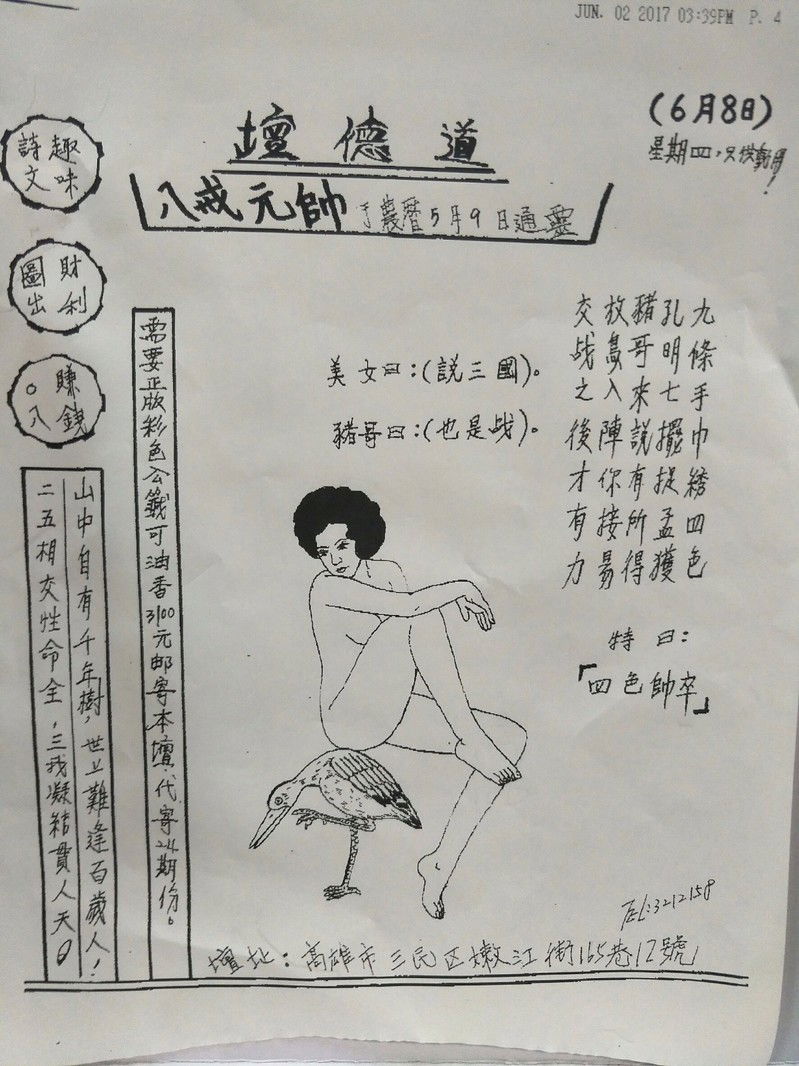 JUN. 02 2017 03:39PM P. 4
(6月8日)
星期四,只供載用!
道德壇
八戒元帥 于農曆5月9日通靈
趣味
詩文
財利
圖出
賺錢
。八
九條手巾綉四色
孔明七擺捉孟獲
豬哥來說有所得
放島入陣你接易
交战之後才有力
特曰:
「四色帥卒」
美女曰:(說三國)。
豬哥曰:(也是战)。
需要正版彩色公籤可油香3100元邮寄本壇代寄24期份。
山中自有千年樹,世上難逢百歲人!
二五相交性命全,三我凝結貫人天。
TEL:3212158
壇址:高雄市三民区嫩江街165巷12號